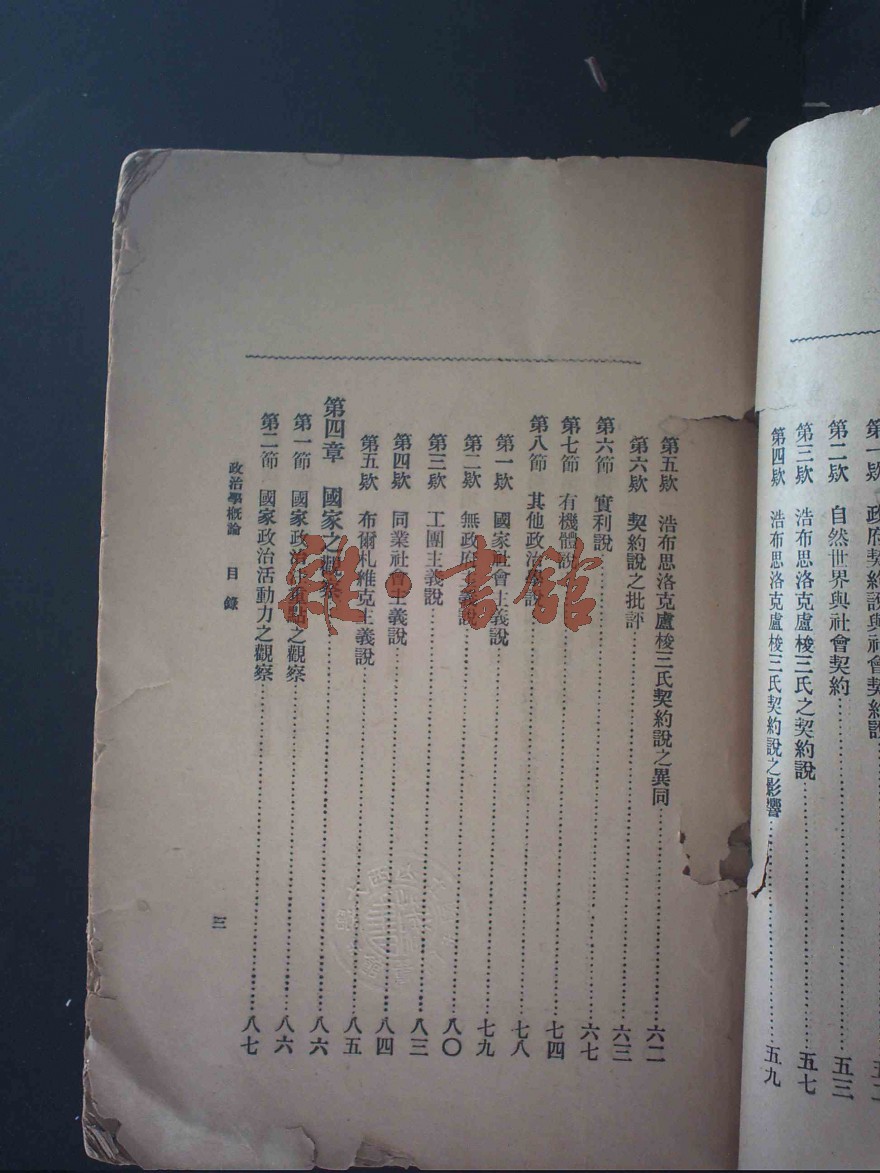 政府契約說與社會契約說
第二欵 自然世界與社會契約……五三
第三欵 浩布思洛克盧梭三氏之契約說……五七
第四欵 浩布思洛克盧梭三氏契約說之影響……五九
第五欵 浩布思洛克盧梭三氏契約說之異同……六二
第六欵 契約說之批評……六三
第六節 實利說……六七
第七節 有機體說……七四
第八節 其他政治學說……七八
第一欵 國家社會主義說……七九
第二欵 無政府主義說……八〇
第三欵 工團主義說……八三
第四欵 同業社會主義說……八四
第五欵 布爾札維克主義說……八五
第四章 國家之觀察……八六
第一節 國家政治重點之觀察……八六
第二節 國家政治活動力之觀察……八七
政治學概論 目錄
三
雜·書館